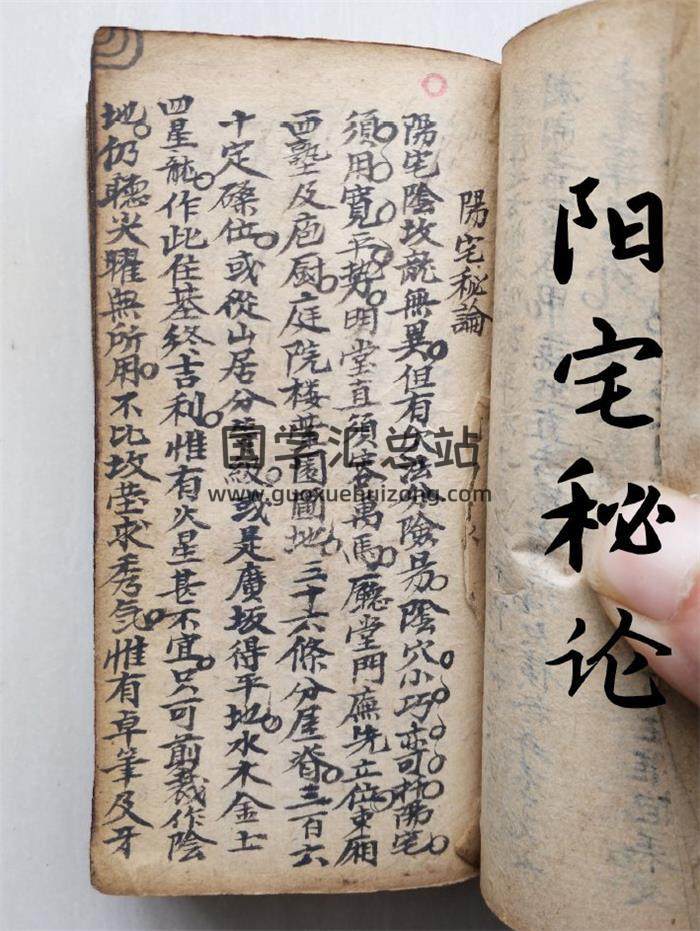 陽宅秘論
陽宅陰坟龍無異但有穴法分險易陰穴小巧亦可扦陽宅
須用寬平势明堂直須容萬馬廳堂門廡先立位東廂
西塾及庖厨庭院楼臺園圃地三十六條分屋脊三百六
十定磉位或從山居分等級或是廣坂得平地水木金土
四星龍作此住基終吉利惟有火星甚不宜只可剪裁作陰
地仍聽尖曜無所用不比坟塋求秀气惟有卓筆及牙
阳宅秘论
国学汇总站
www.guoxuehuizong.com